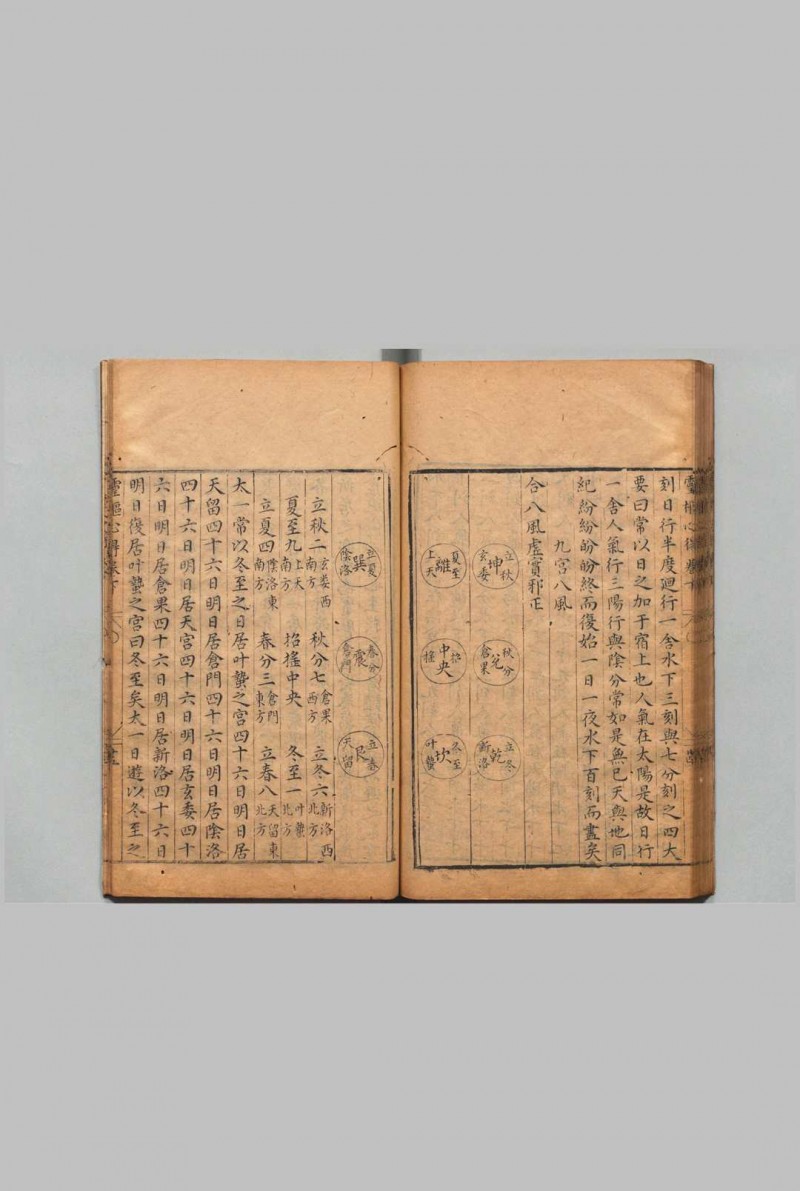 刻日行半度廻行一舍水下三刻與七分刻之四大
要曰常以日之加于宿上也人氣在太陽是故日行
一舍人氣行三陽行與陰分常如是無已天與地同
紀紛紛盼盼終而復始一日一夜水下百刻而盡矣
九宮八風
合八風虛實邪正
立秋 坤 玄委
秋分 兌 倉果
立冬 乾 新洛
夏至 離 上天
招 中央 搖
冬至 坎 叶蟄
立夏 巽 陰洛
春分 震 倉門
立春 艮 天留
立秋二玄委西南方 秋分七倉果西方 立冬六新洛西北方
夏至九上天南方 招搖中央 冬至一叶蟄北方
立夏四陰洛東南方 春分三倉門東方 立春八天留東北方
太一常以冬至之日居叶蟄之宮四十六日明日居
天留四十六日明日居倉門四十六日明日居陰洛
四十六日明日居天宮四十六日明日居玄委四十
六日明日居倉果四十六日明日居新洛四十六日
明日復居叶蟄之宮曰冬至矣太一日遊以冬至之
靈樞心得卷下